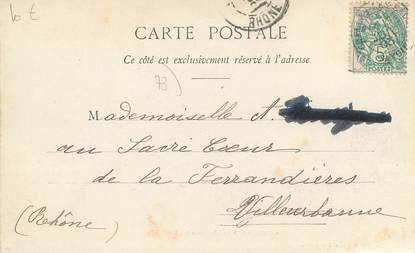 RHÔNE
CARTE POSTALE
Ce côté est exclusivement réservé à l'adresse
73)
Mademoiselle A.
au Sacré Cœur
de la Ferrandières
Villeurbanne
(Rhône)